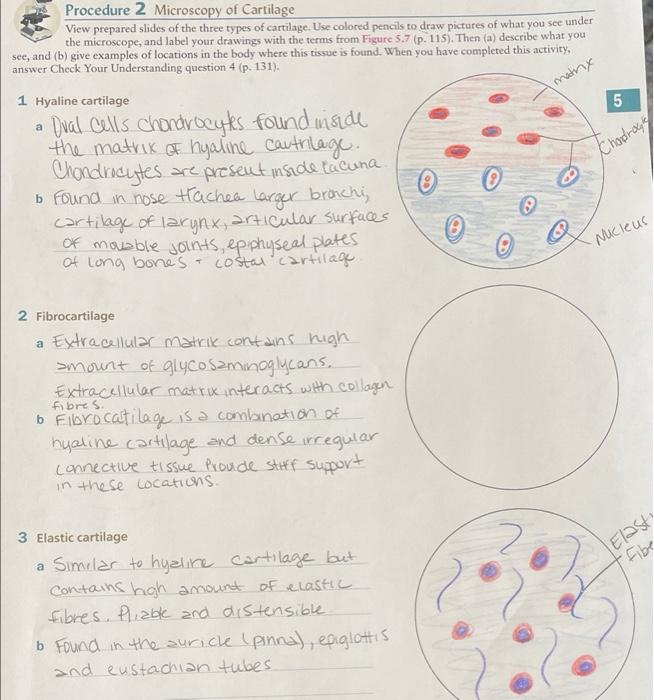 Procedure 2 Microscopy of Cartilage
View prepared slides of the three types of cartilage. Use colored pencils to draw pictures of what you see under
the microscope, and label your drawings with the terms from Figure 5.7 (p. 115). Then (a) describe what you
see, and (b) give examples of locations in the body where this tissue is found. When you have completed this activity,
answer Check Your Understanding question 4 (p. 131).
matrix
5
1 Hyaline cartilage
a Oval cells chondrocytes found inside
the matrix of hyaline cautrilage.
Chondriacytes are present inside lacuna
b Found in nose trachea larger bronchi,
cartilage of larynx, articular surfaces
of movable joints, epiphyseal plates
of long bones + costal cartilage
Nucleus
2 Fibrocartilage
a Extracellular matrix contains high
amount of glycosaminoglycans.
Extracellular matrix interacts with collagen
fibres.
b Fibrocartilage is a combination of
hyaline cartilage and dense irregular
connective tissue Provide stiff support
in these locations.
3 Elastic cartilage
a Similar to hyaline cartilage but
contains high amount of elastic
fibres. Pliable and distensible
b Found in the auricle (pinna), epiglottis
and eustachian tubes
Elasti
Fibe